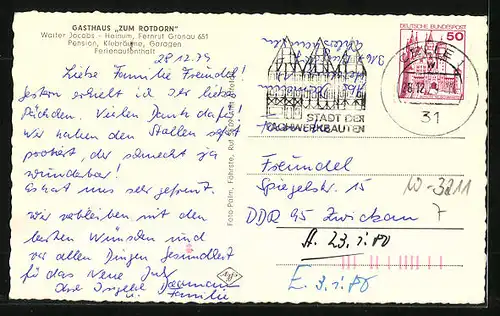 GASTHAUS „ZUM ROTDORN"
Walter Jacobs - Heinum, Fernruf Gronau 651
Pension, Klebräume, Garagen
Ferienaufenthalt
28.12.79
Liebe Familie Freundel!
Gestern erhielt ich Ihr liebes
Päckchen. Vielen Dank dafür!
Wir haben den Stollen sofort
probiert, der schmeckt ja
wunderbar!
Es hat uns sehr gefreut.
Wir verbleiben mit den
besten Wünschen und
vor allen Dingen Gesundheit
für das Neue Jahr
Ihre
Familie
Foto-Palm, Föhrste, Ruf
STADT DER
FACHWERKBAUTEN
CELLE
28.12.
31
50
DEUTSCHE BUNDESPOST
Freundel
Spiegelstr. 15
DDR 95 Zwickau 7
W-3211
A. 23.1.80
E. 3.1.80